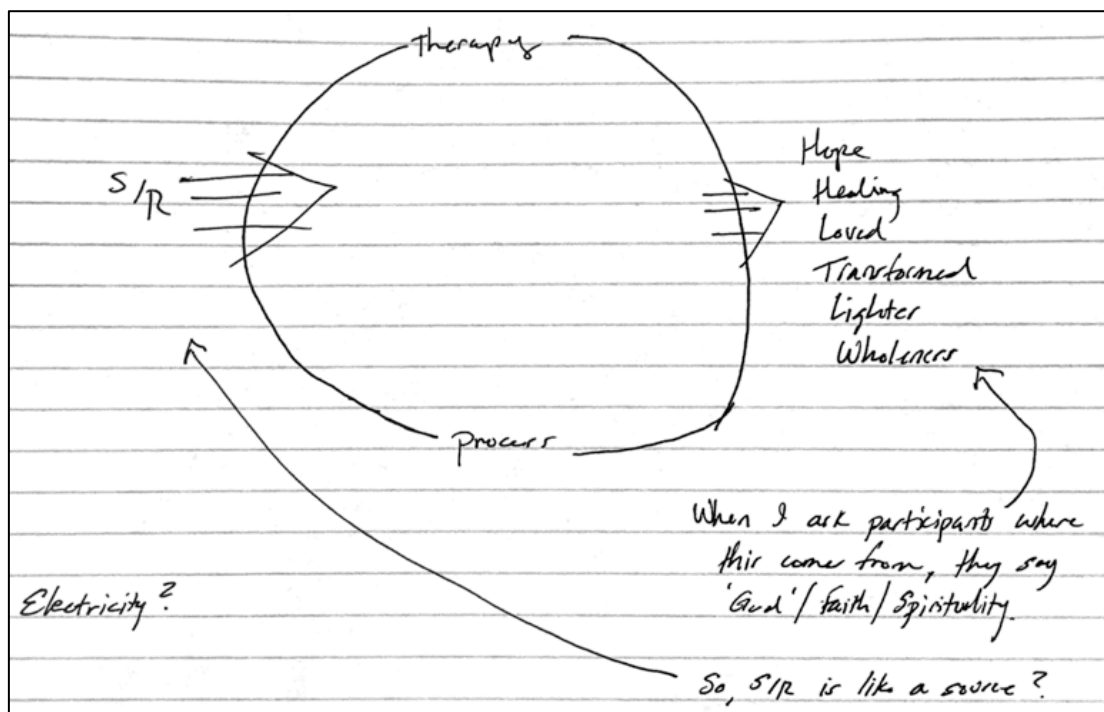 Therapy
S/R
Hope
Healing
Loved
Transformed
Lighter
Wholeness
Process
When I ask participants where
this comes from, they say
'God'/Faith/Spirituality.
Electricity?
So, S/R is like a source?